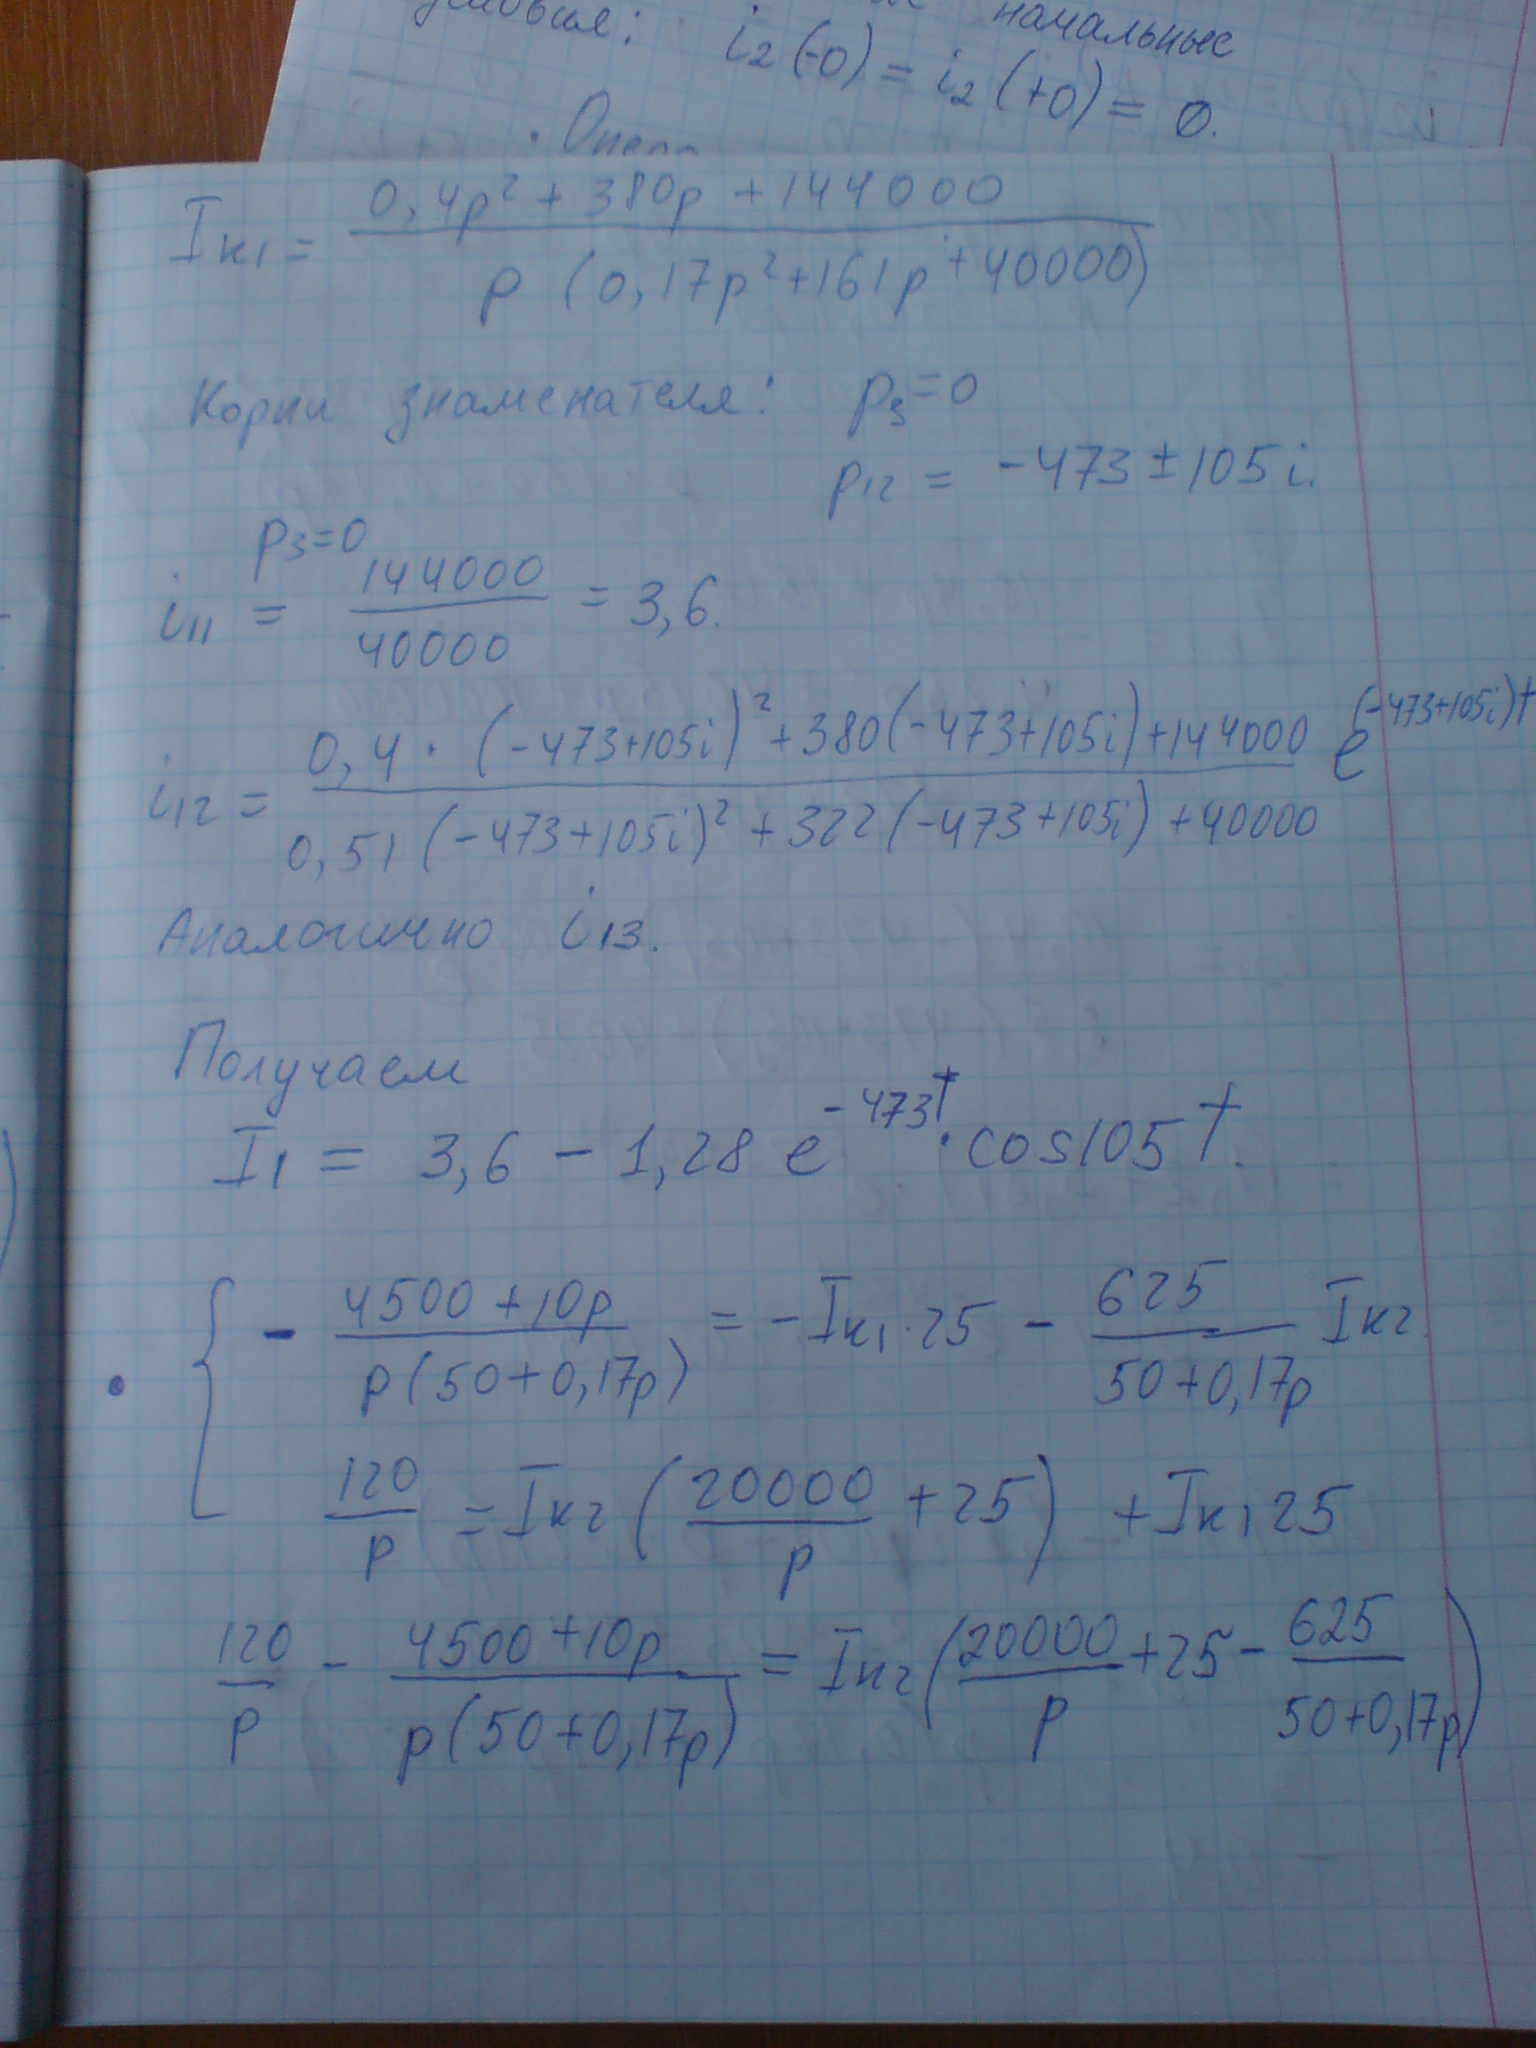 условия: начальные
i₂(-0) = i₂(+0) = 0.
Iк₁ = (0,4p² + 380p + 144000) / (p (0,17p² + 161p + 40000))
Корни знаменателя: p₃ = 0
p₁₂ = -473 ± 105i.
p₃ = 0
i₁₁ = 144000 / 40000 = 3,6.
i₁₂ = (0,4 · (-473+105i)² + 380(-473+105i) + 144000) / (0,51(-473+105i)² + 322(-473+105i) + 40000) e^((-473+105i)t)
Аналогично i₁₃.
Получаем
I₁ = 3,6 - 1,28 e^(-473t) · cos105t.
{ - (4500 + 10p) / (p(50 + 0,17p)) = -Iк₁·25 - 625 / (50 + 0,17p) Iк₂.
120 / p = Iк₂ (20000 / p + 25) + Iк₁ 25
120 / p - (4500 + 10p) / (p(50 + 0,17p)) = Iк₂ (20000 / p + 25 - 625 / (50 + 0,17p))